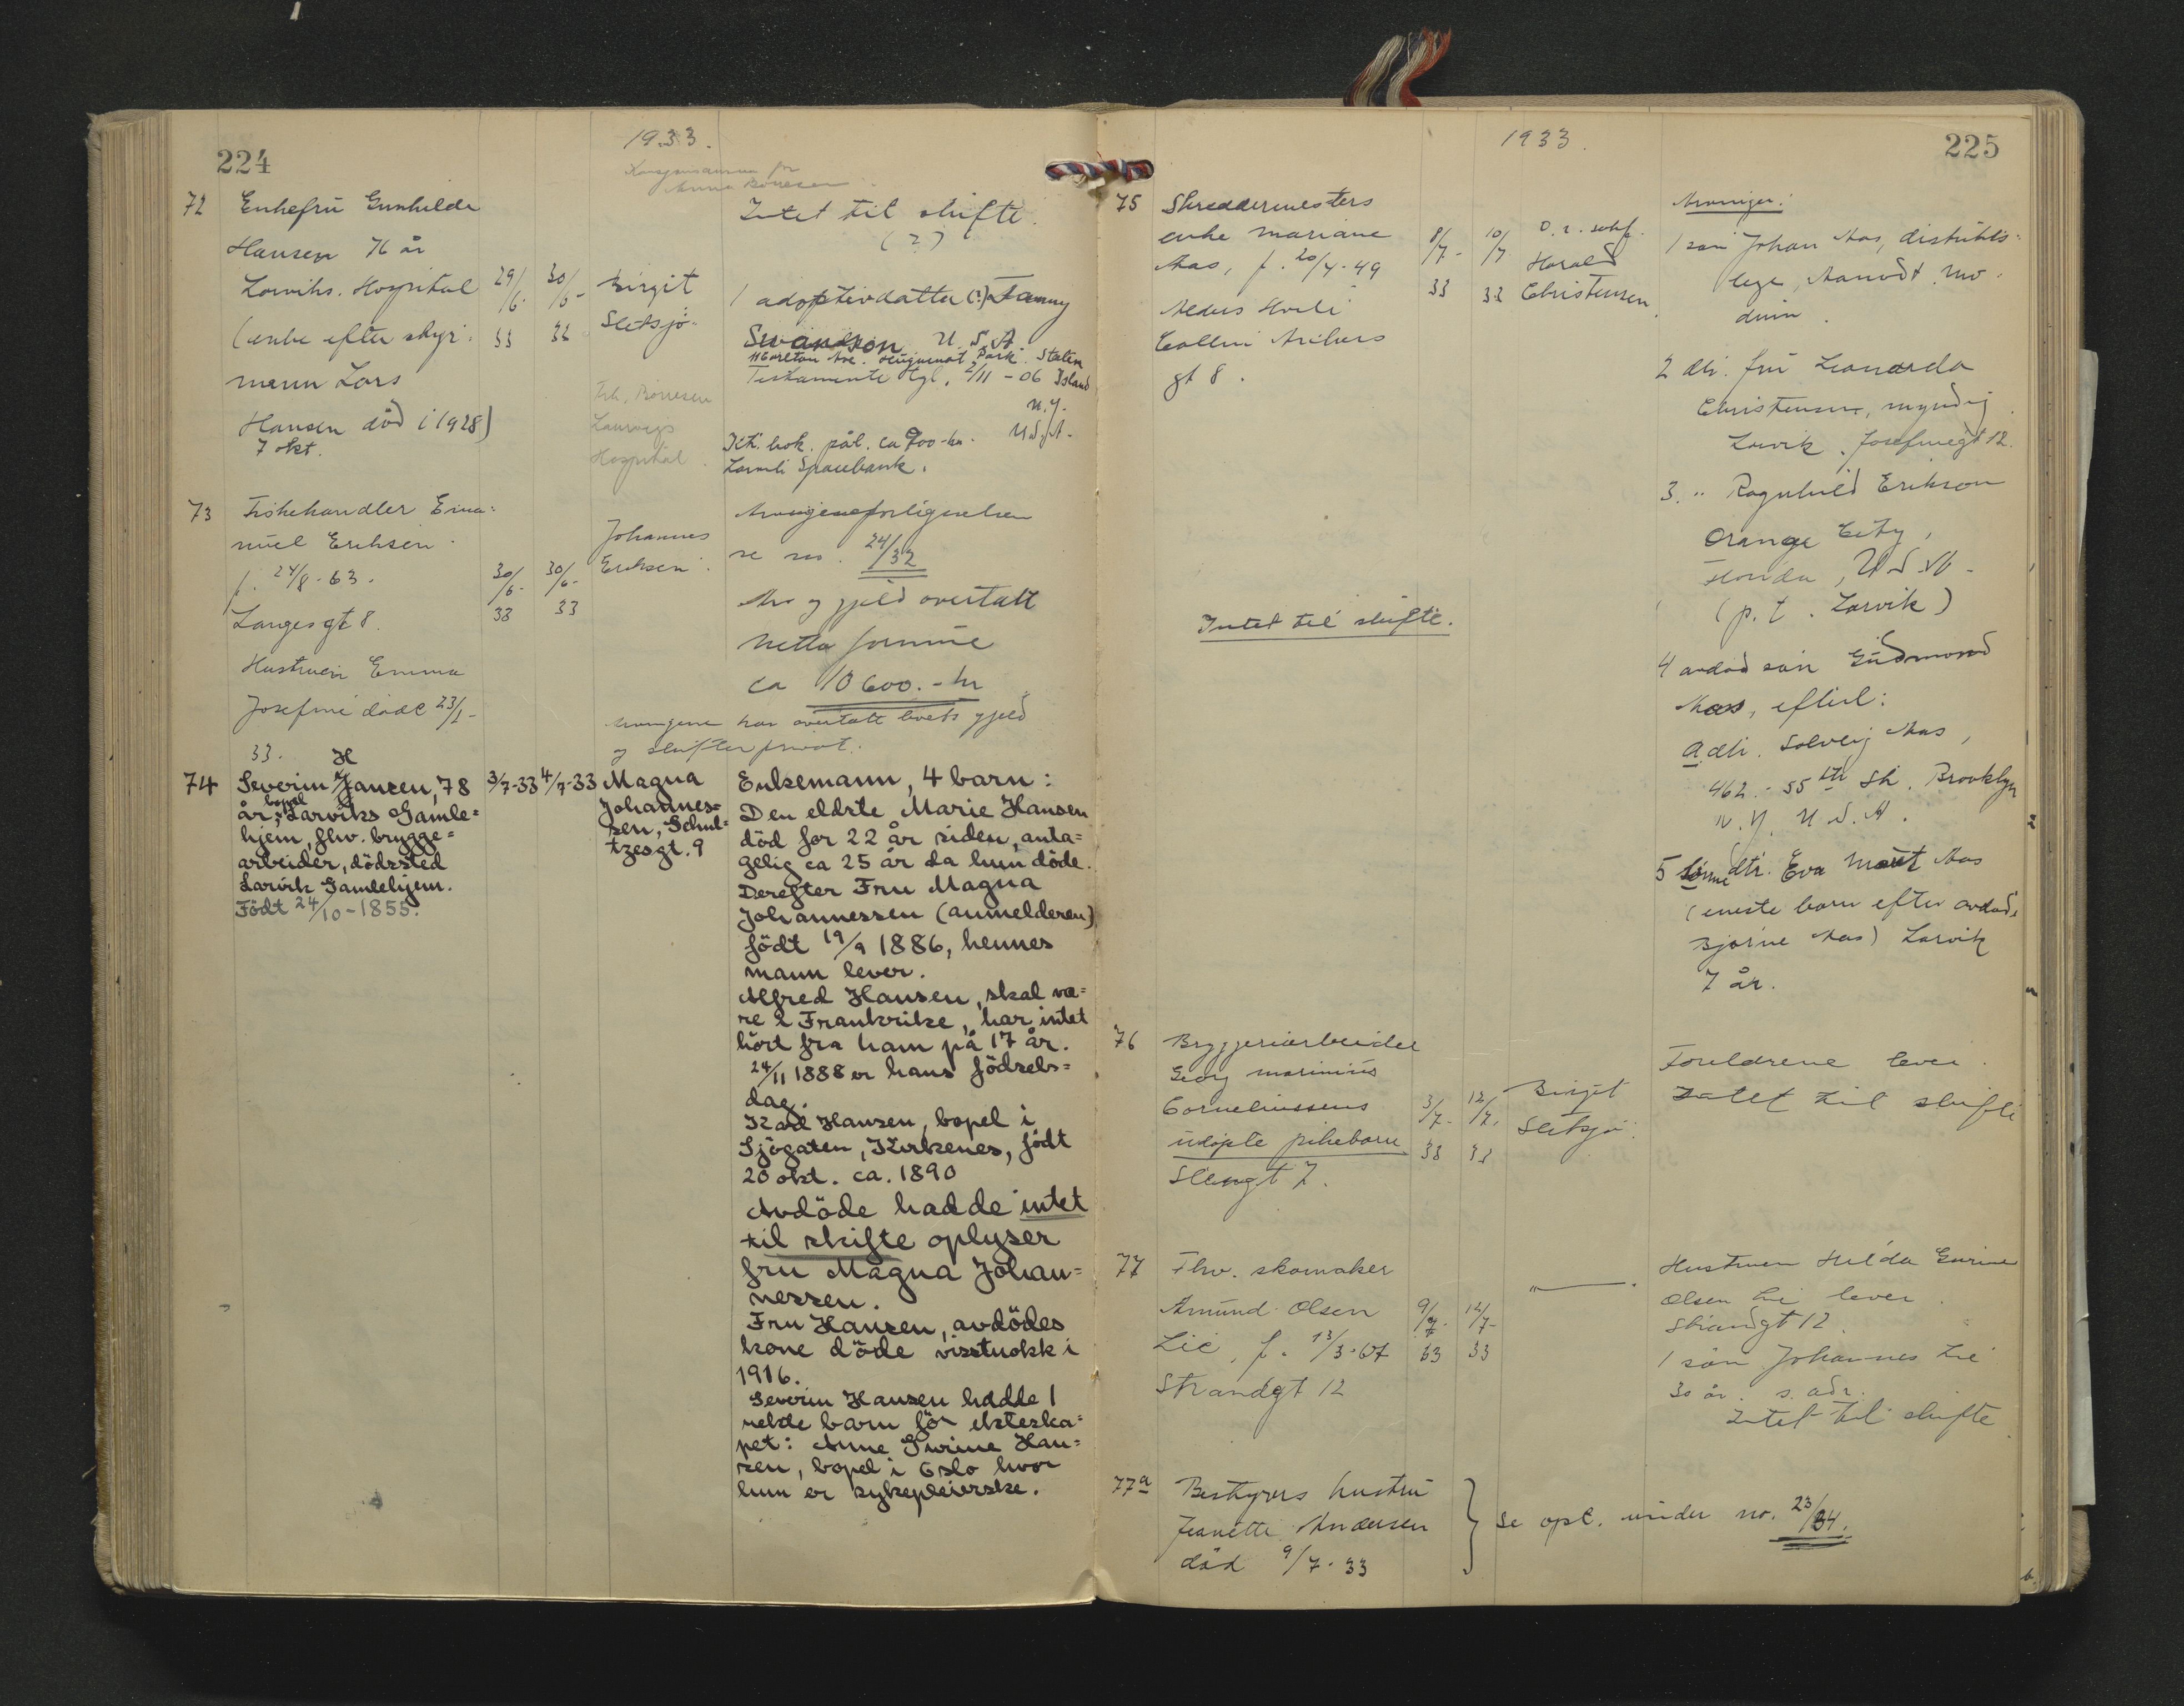 224
1933.
72 Enkefru Gunhilde
Hansen 76 år
Larviks. Hospital
(enke efter styr:
mann Lars
Hansen död i 1928)
7 okt.
29/6- 33
30/6- 33
Birgit
Sletsjö-
Frk. Börresen
Larvigs
Hospital
Intet til skifte.
(?)
1 adoptivdatter (?) Fanny
Swandson U.S.A
11 Carlton Ave. Huguenot Park. Staten
Testamente tgl. 2/11-06 Island
N.Y.
U.S.A.
Ktr. bok. pål. ca 900-kr.
Larvik Sparebank.
73 Fiskehandler Ema:
nuel Eriksen
f. 24/8-63.
Langesgt 8.
Hustruen Emma
Josefine döde 23/1-
33.
30/6- 33
30/6- 33
Johannes
Eriksen.
se no. 24/32
Arv og gjeld overtatt
Netto formue
ca 10600.- kr
Arvingene har overtatt boets gjeld
og skifter privat.
74 Severin Hansen, 78
år, bopel Larviks Gamle=
hjem, fhv. brygge=
arbeider, dödssted
Larvik Gamlehjem.
Födt 24/10-1855.
3/7-33 4/7-33
Magna
Johannes=
sen, Schul=
tzesgt. 9
Enkemann, 4 barn:
Den eldste Marie Hansen
död for 22 år siden, anta=
gelig ca 25 år da hun döde.
Derefter Fru Magna
Johannessen (anmelderen)
födt 19/9 1886, hennes
mann lever.
Alfred Hansen, skal væ=
re i Frankrike, har intet
hört fra ham på 17 år.
24/11 1888 er hans födsels=
dag.
Karl Hansen, bopel i
Sjögaten, Kirkenes, födt
20 okt. ca. 1890
Avdöde hadde intet
til skifte oplyser
fru Magna Johan=
nessen.
Fru Hansen, avdödes
kone döde visstnokk i
1916.
Severin Hansen hadde 1
uekte barn för ekteska=
pet: Anne Gurine Han=
sen, bopel i Oslo hvor
hun er sykepleierske.
1933.
225
75 Skreddermesters
enke Mariane
Aas, f. 20/4-49
Collin Archers
gt 8.
8/7- 33
10/7 33
O.r. sakf.
Harald
Christensen
Intet til skifte.
Arvinger:
1 sön Johan Aas, distrikts=
lege, Aamodt. Mo.
2 dtr. fru Leonarda
Christensen, myndig
Larvik. Josefinegt 12.
3. " Ragnhild Erikson
Orange City,
Florida, U.S.A-
(p.t. Larvik)
4 avdöd sön Gudmund
Aas, efterl:
a dtr. Solveig Aas,
462 - 55th Str. Brooklyn
N.Y. U.S.A.
5 sönne dtr. Eva Aas
(eneste barn efter avdöde
Bjarne Aas) Larvik
7 år.
76 Bryggeriarbeider
Georg Marinius
Corneliussens
udöpte pikebarn
3/7- 33
12/7. 33
Birgit
Sletsjö
Foreldrene lever.
Intet til skifte
77 Fhv. skomaker
Amund Olsen
Lie, f. 13/3-67
Strandgt 12
9/7- 33
12/7- 33
Hustruen Hilda Gurine
Olsen Lie lever.
Strandgt 12.
1 sön Johannes Lie
30 år. s. adr.
Intet til skifte
77a Bestyrers hustru
Jeanette Andersen
död 9/7-33
Se opl. under no. 23/34.